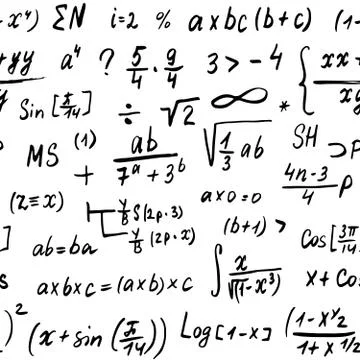 - x⁴) ΣN i=2 % axbc (b+c) (1-
+yy a⁴ ? 5/4 · 9/4 3 > -4 { xx +
y Sin [π/14] ÷ √2 ∞ * xy
MS (1) + ab/(7ᵃ + 3ᵇ) √(1/3) ab SH ⊃P
(z≡x) a×0=0 (4n-3)/4 P
y/B S(2p·3) (b+1) >
] ab=ba y/B (2p·x) ∫ x/√(1-x³) Cos[3π/14
s axbxc = (axb)xc x + Co
)² (x + sin (π/14)) Log[1-x] (1-x^y/2)/(1+x^1/2)